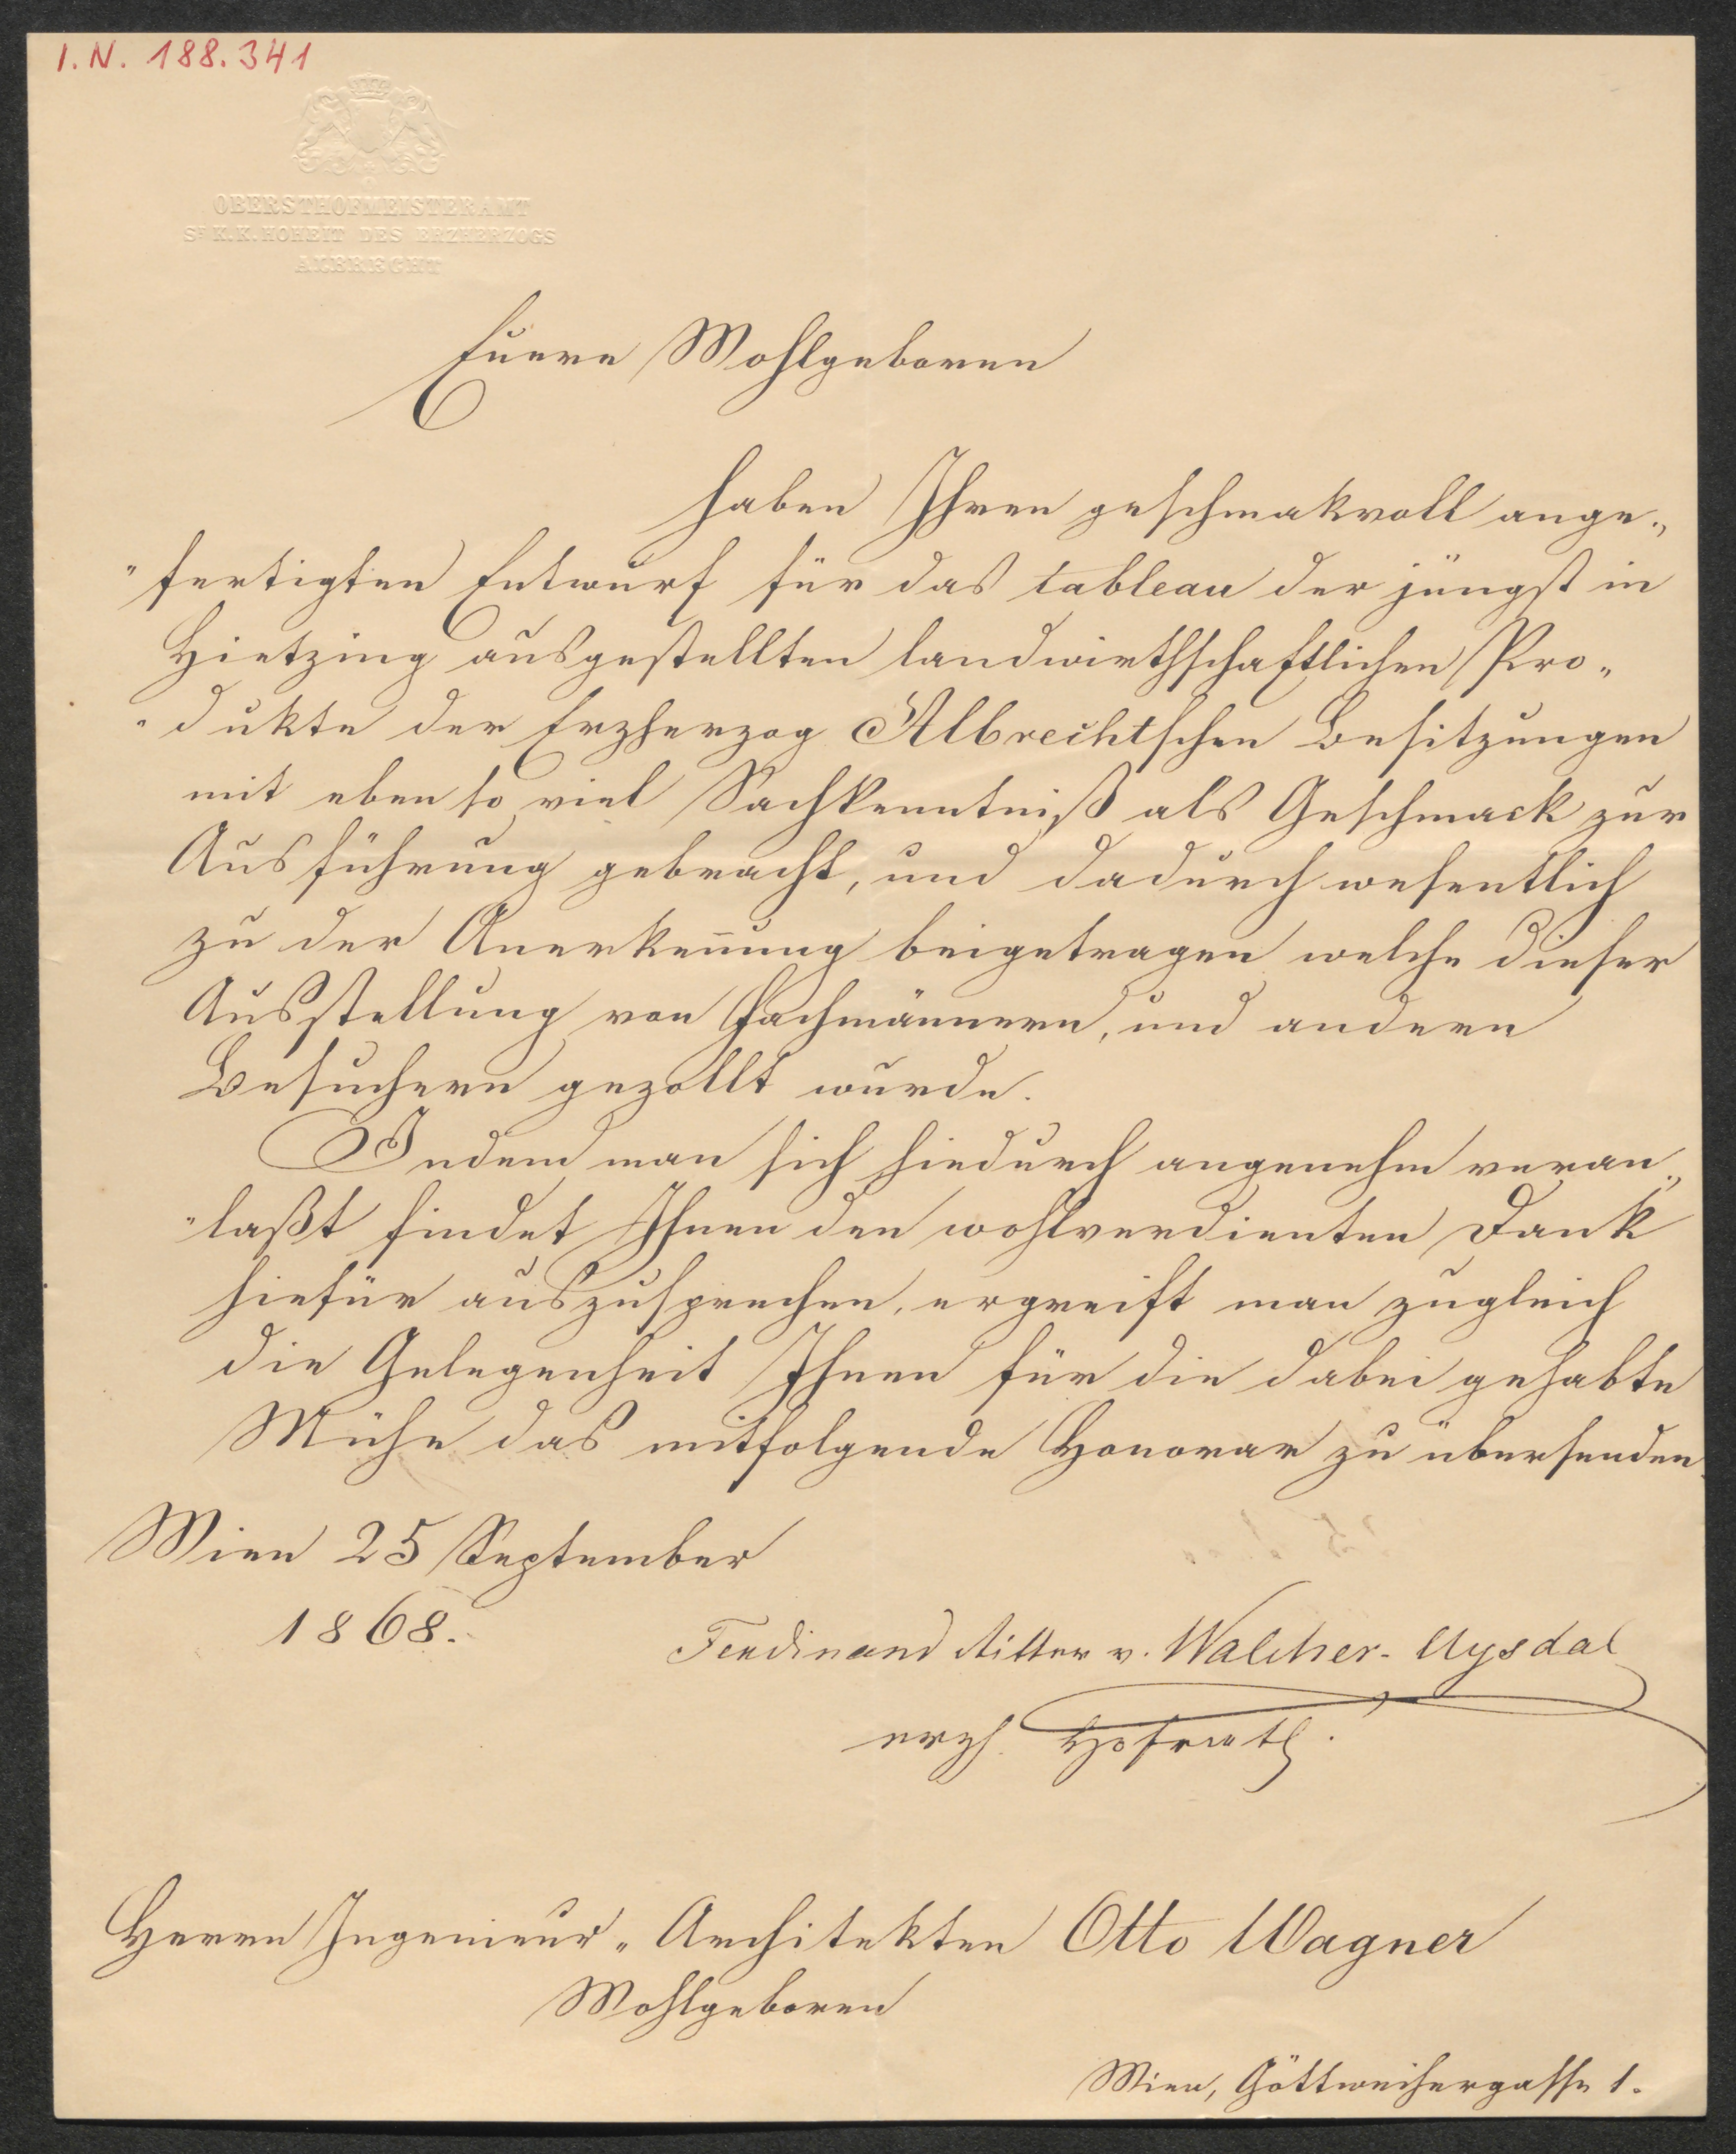 I.N. 188.341
OBERSTHOFMEISTERAMT
Sr K.K. HOHEIT DES ERZHERZOGS
ALBRECHT
Euere Wohlgeboren
haben Ihren geschmakvoll ange„
"fertigten Entwurf für das tableau der jüngst in
Hietzing ausgestellten landwirthschaftlichen Pro„
"dukte der Erzherzog Albrechtschen Besitzungen
mit eben so viel Sachkenntniß als Geschmack zur
Ausführung gebracht, und dadurch wesentlich
zu der Anerken̅ung beigetragen welche dieser
Ausstellung von Fachmännern, und andern
Besuchern gezollt wurde.
Indem man sich hiedurch angenehm veran„
"laßt findet Ihnen den wohlverdienten Dank
hiefür auszusprechen, ergreift man zugleich
die Gelegenheit Ihnen für die dabei gehabte
Mühe das mitfolgende Honorar zu übersenden.
Wien 25 September
1868.
Ferdinand Ritter v. Walcher-Uysdal
erzh. Hofrath.
Herrn Ingenieur„Architekten Otto Wagner
Wohlgeboren
Wien, Göttweihergasse 1.